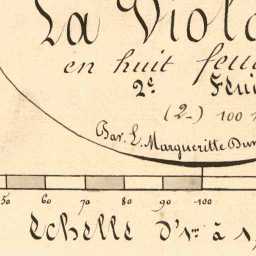 La Viol
en huit feu
2e Feui
(2_) 100
Par L. Margueritte Du
50 60 70 80 90 100
Echelle d'1m à 1